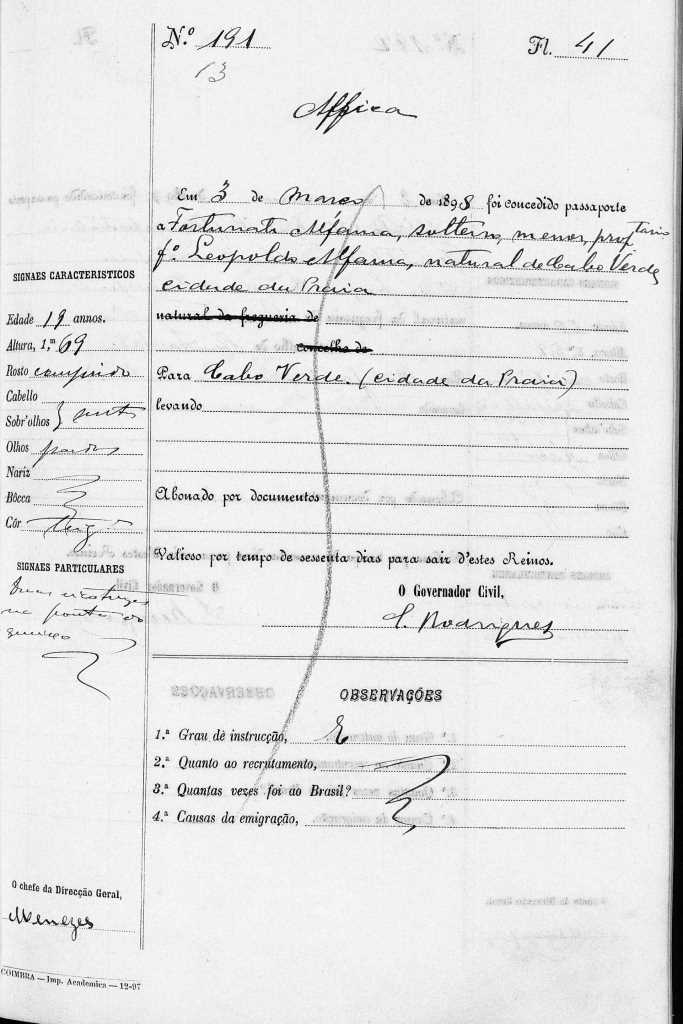 N.º 191
Fl. 41
13
Affrica
Em 3 de Março de 1898 foi concedido passaporte
a Fortunato Alfama, solteiro, menor, proptario
fº. Leopoldo Alfama, natural de Cabo Verde
cidade da Praia
natural da freguezia de
concelho de
Para Cabo Verde. (cidade da Praia)
levando
Abonado por documentos
Valioso por tempo de sessenta dias para sair d'estes Reinos.
O Governador Civil,
Rodrigues
SIGNAES CARACTERISTICOS
Edade 19 annos.
Altura, 1,m 69
Rosto comprido
Cabello
Sobr'olhos
Olhos pardos
Nariz
Bôcca
Côr
SIGNAES PARTICULARES
na ponta do
queixo
OBSERVAÇÕES
1.ª Grau de instrucção,
2.ª Quanto ao recrutamento,
3.ª Quantas vezes foi ao Brasil?
4.ª Causas da emigração,
O chefe da Direcção Geral,
Menezes
COIMBRA — Imp. Academica — 12-97